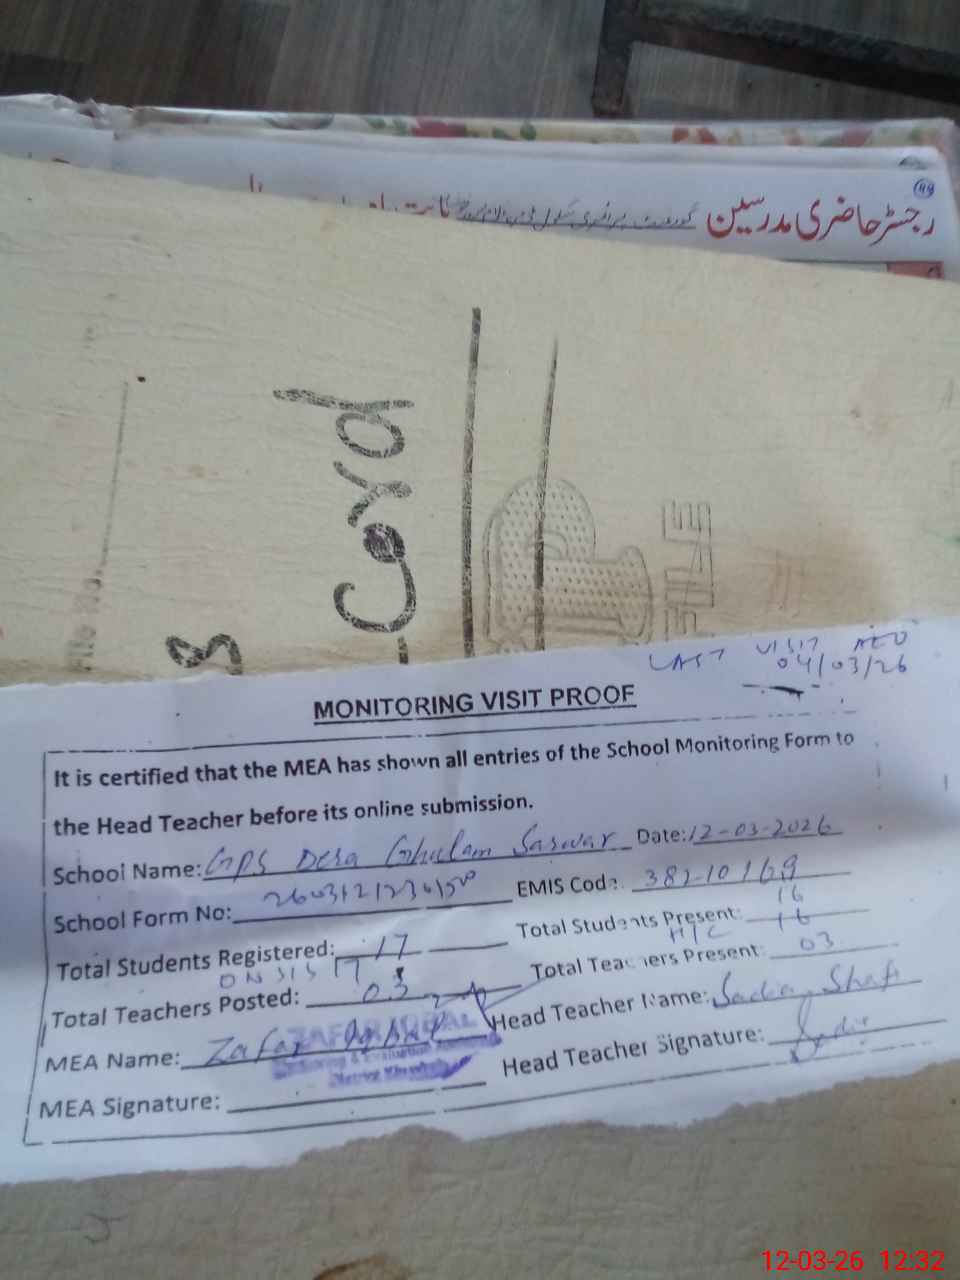 99
رجسٹر حاضری مدرسین
Card
FILE
File No.
LAST VISIT AEO
04/03/26
MONITORING VISIT PROOF
It is certified that the MEA has shown all entries of the School Monitoring Form to
the Head Teacher before its online submission.
School Name: GPS Dera Ghulam Sarwar Date: 12-03-2026
School Form No: EMIS Code: 38210169
16
Total Students Registered: 17 Total Students Present: 16
ON SIS 17 H/C
Total Teachers Posted: 03 Total Teachers Present: 03
MEA Name: Zafar Iqbal Head Teacher Name: Sadia Shafi
ZAFAR IQBAL
Monitoring & Evaluation Assistant
MEA Signature: Head Teacher Signature: Sadia
12-03-26 12:32